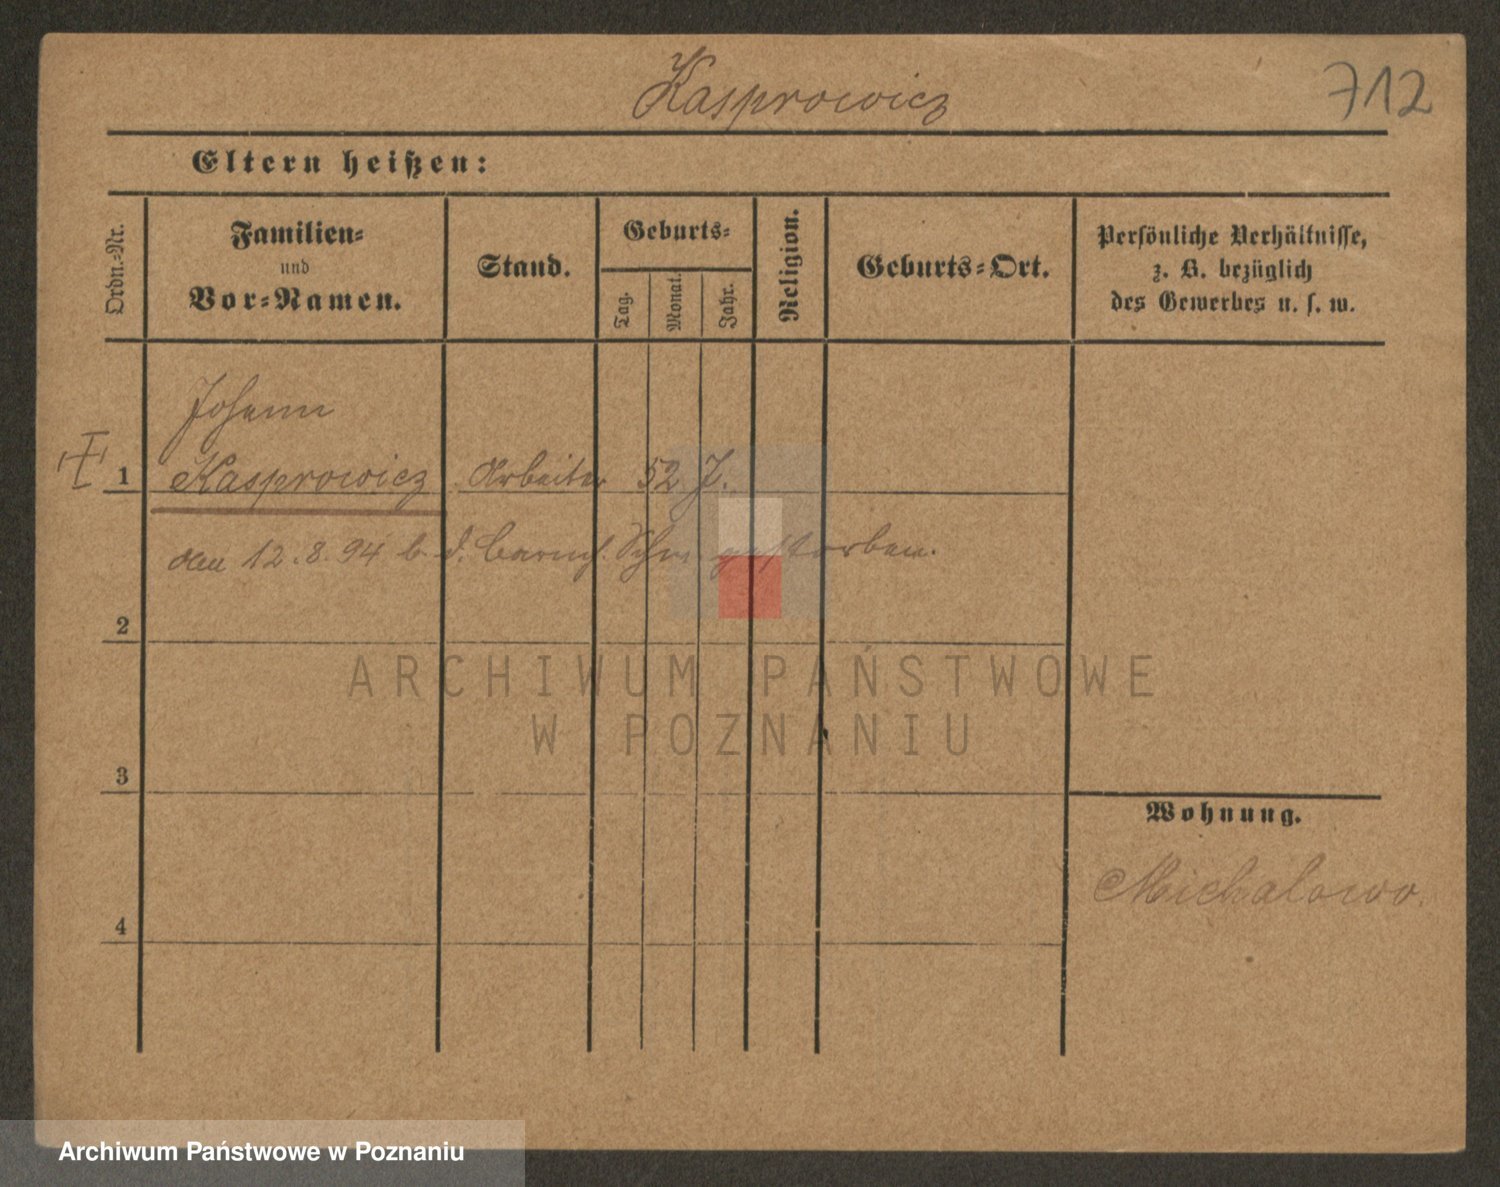 Kasprowicz
712
Eltern heißen:
Ordn.-Nr.
Familien-
und
Vor-Namen.
Stand.
Geburts-
Tag.
Monat.
Jahr.
Religion.
Geburts-Ort.
Persönliche Verhältnisse,
z. B. bezüglich
des Gewerbes u. s. w.
Johann
1 Kasprowicz Arbeiter 52 J.
den 12.8.94 b. d. barmh. Schw. gestorben.
2
ARCHIWUM PAŃSTWOWE
W POZNANIU
3
Wohnung.
Michalowo.
4
Archiwum Państwowe w Poznaniu